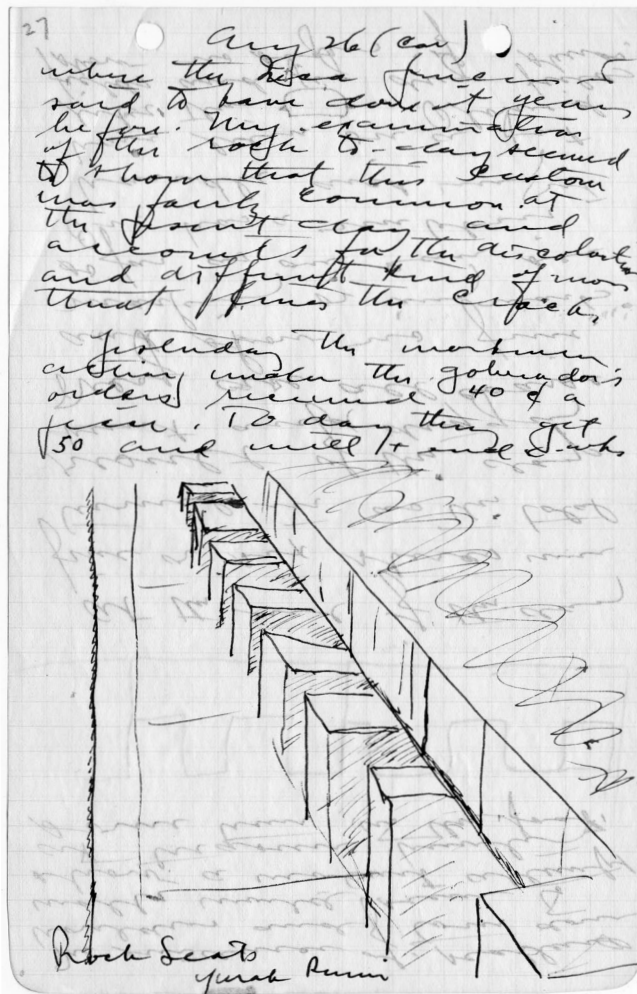 27
Aug 26 (con)
where the Inca princess is
said to have done it years
before. My examination
of the rock to-day seemed
to show that this custom
was fairly common at
the present day and
accounts for the discoloration
and different kind of moss
that fines the cracks.
Yesterday the workmen
acting under the gobernador's
orders received 40 ¢ a
piece. To day they get
50 and will
Rock Seats
Yurak Rumi